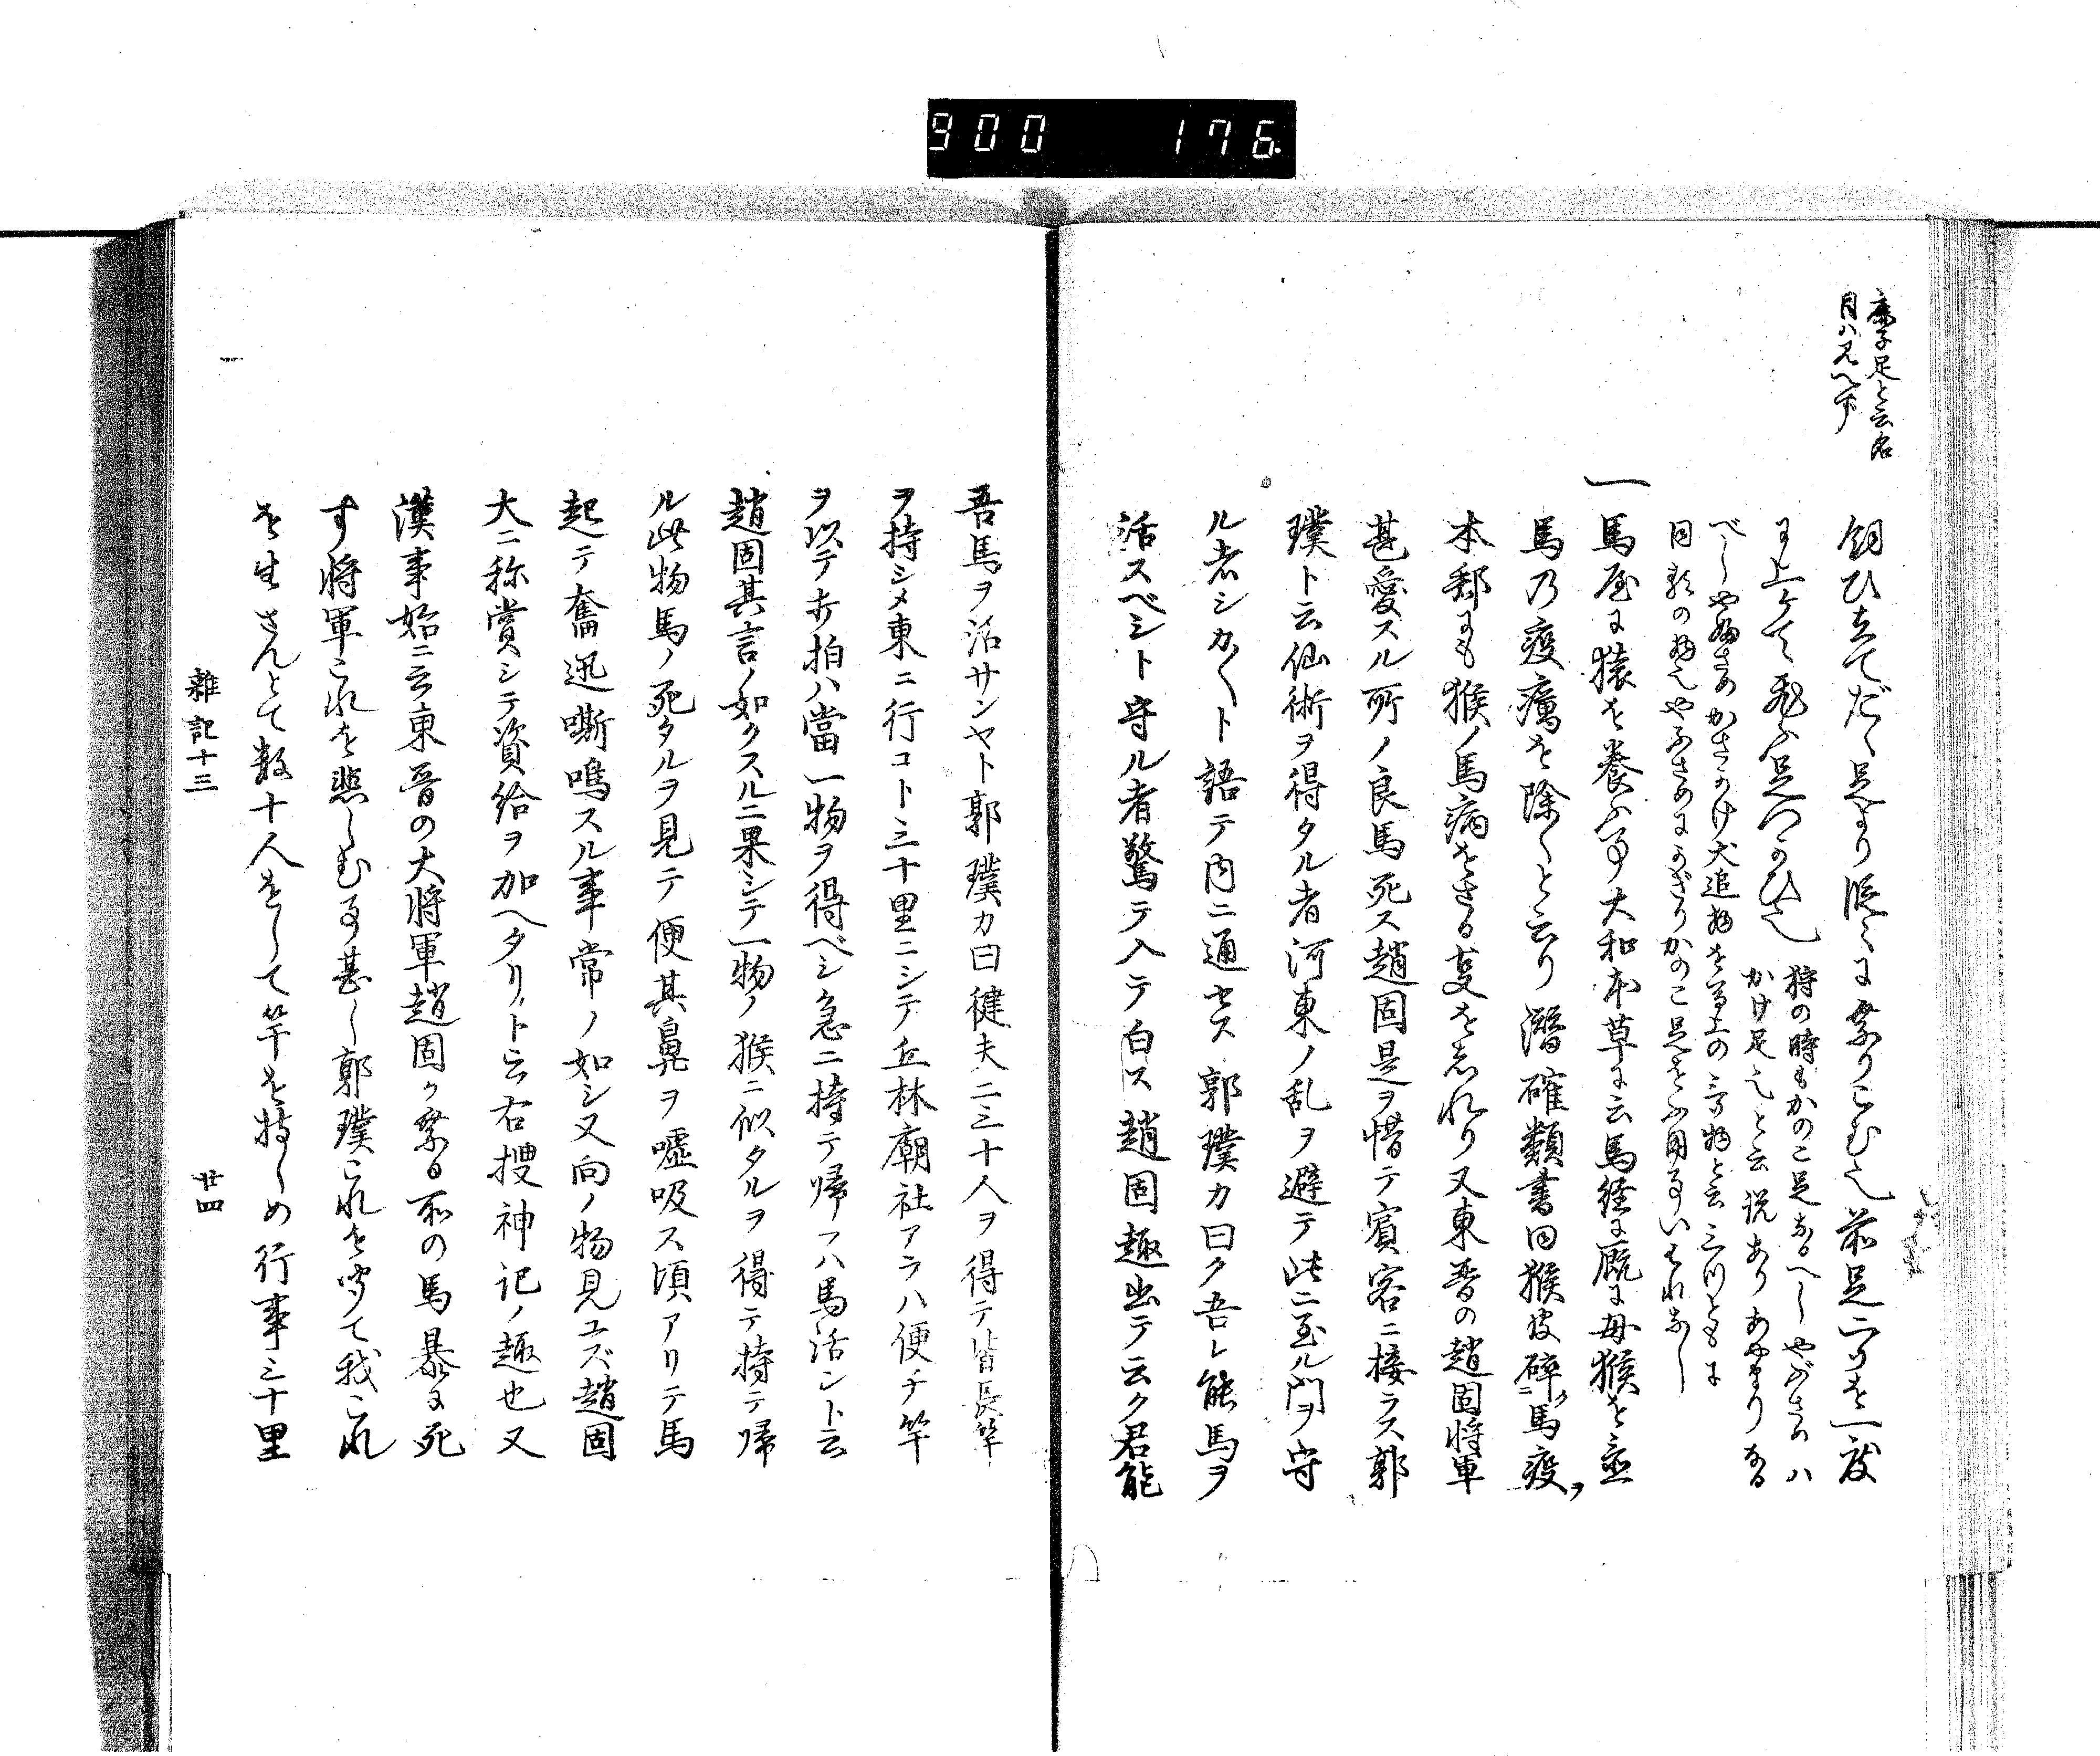 900 176
鹿子足と云名
目ハ見へす
飼ひたてだく足より段々に乗りこむ也前足二つを一度
に上ケて飛ふ足つかひ也
狩の時もかのこ足なるへしやぶさめハ
かけ足也と云説ありあやまりなる
べしやぶさめかさかけ犬追物を馬上の三物と云三つともに
一馬屋に猿を養ふ事大和本草に云馬経に厩に母猴を畜
馬乃疫癘を除くと云り潜確類書曰猴皮碎馬疫ヲ
本邦にも猴ノ馬病をさる事をしれり又東晋の趙固将軍
甚愛スル所ノ良馬死ス趙固是ヲ惜テ賓客ニ接ラス郭
璞ト云仙術ヲ得タル者河東ノ乱ヲ避テ此ニ至ル門ヲ守
ル者シカ〱ト語テ内ニ通セス郭璞カ曰ク吾レ能馬ヲ
活スベシト守ル者驚テ入テ白ス趙固趣出テ云ク君能
吾馬ヲ活サンヤト郭璞カ曰健夫二三十人ヲ得テ皆長竿
ヲ持シメ東ニ行コト三十里ニシテ丘林廟社アラハ便チ竿
ヲ以テ打拍ハ當一物ヲ得ベシ急ニ持テ帰ラハ馬活ント云
趙固其言ノ如クスルニ果シテ一物ノ猴ニ似タルヲ得テ持テ帰
ル此物馬ノ死タルヲ見テ便其鼻ヲ嘘吸ス須アリテ馬
起テ奮迅嘶鳴スル事常ノ如シ又向ノ物見ユズ趙固
大ニ称賞シテ資給ヲ加ヘタリト云右捜神記ノ趣也又
漢事始ニ云東晋の大将軍趙固か乗る所の馬暴に死
す将軍これを悲しむ事甚し郭璞これを聞て我これ
を生さんとて数十人をして竿を持しめ行事三十里
雑記十三
廿四